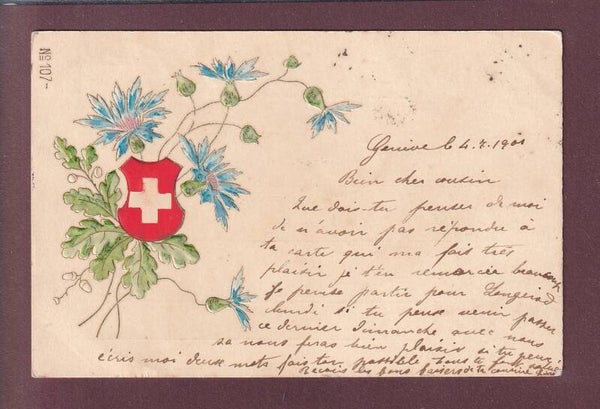 No 107-
Genève le 4.7.1901
Bien cher cousin
Que dois-tu penser de moi
de n'avoir pas répondu à
ta carte qui ma fait très
plaisir je t'en remercie beaucoup
Je pense partir pour
lundi si tu peux venir passer
ce dernier Dimanche avec nous
sa nous feras bien plaisir si tu peux
écris moi deux mots fais ton possible
Recois les bons baisers de ta cousine